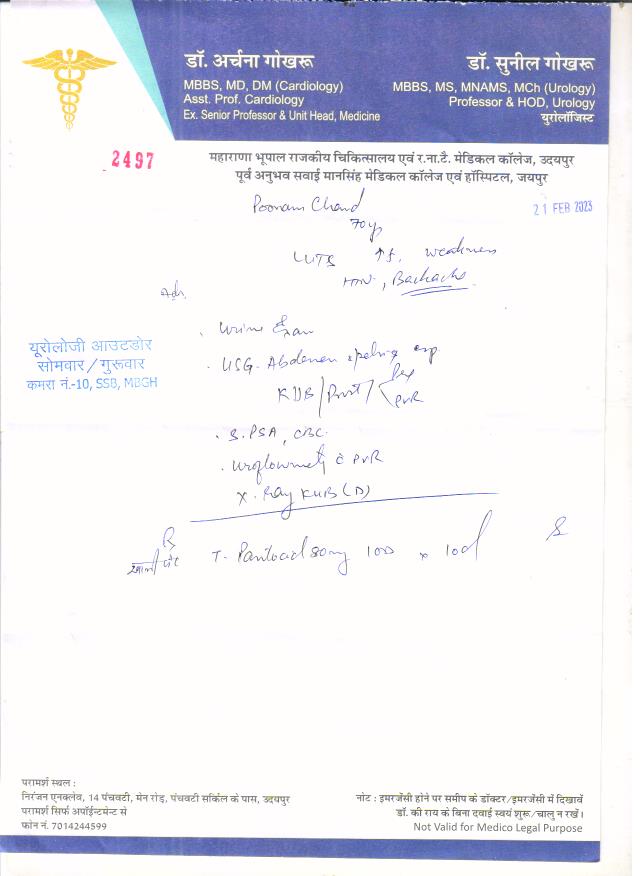 डॉ. अर्चना गोखरू
MBBS, MD, DM (Cardiology)
Asst. Prof. Cardiology
Ex. Senior Professor & Unit Head, Medicine
डॉ. सुनील गोखरू
MBBS, MS, MNAMS, MCh (Urology)
Professor & HOD, Urology
युरोलॉजिस्ट
2497
महाराणा भूपाल राजकीय चिकित्सालय एवं र.ना.टै. मेडिकल कॉलेज, उदयपुर
पूर्व अनुभव सवाई मानसिंह मेडिकल कॉलेज एवं हॉस्पिटल, जयपुर
21 FEB 2023
Poonam Chand
70y
LUTS ↑f. weakness
HTN, Backache
Adv.
यूरोलोजी आउटडोर
सोमवार/गुरूवार
कमरा नं.-10, SSB, MBGH
. Urine Exam
. USG. Abdomen & pelvis
KUB/Prost/ Pre
PVR
. S. PSA, CBC.
. Uroflowmetry c̄ PVR
X. Ray KUB (D)
R
खाली पेट T. Pantocid 80mg 1OD x 10d
परामर्श स्थल :
निरंजन एनक्लेव, 14 पंचवटी, मेन रोड़, पंचवटी सर्किल के पास, उदयपुर
परामर्श सिर्फ अपॉईन्टमेन्ट से
फोन नं. 7014244599
नोट : इमरजेंसी होने पर समीप के डॉक्टर/इमरजेंसी में दिखावें
डॉ. की राय के बिना दवाई स्वयं शुरू/चालु न रखें।
Not Valid for Medico Legal Purpose